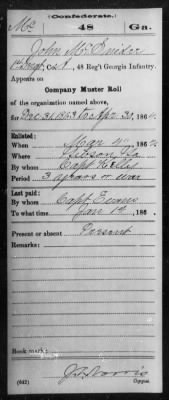 (Confederate.)
Mc 48 Ga.
John McSwider
1st Sergt, Co. I, 48 Reg't Georgia Infantry.
Appears on
Company Muster Roll
of the organization named above,
for Dec 31 1863 to Apr 30, 1864.
Enlisted:
When Mar 4, 1862
Where Gibson Ga
By whom Capt Kelly
Period 3 years or war
Last paid:
By whom Capt Evans
To what time Jan 1st, 186 .
Present or absent Present
Remarks:
Book mark:
(642) Copyist.